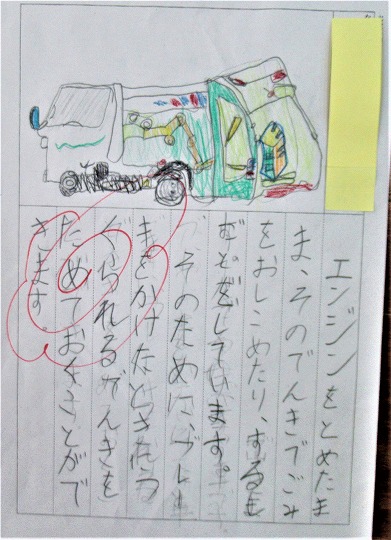 エンジンをとめたま
ま、そのでんきでごみ
をおしこめたり、するし
ごとをしています。
そのために、ブレー
きをかけたときにつ
くられるでんきを
ためておくことがで
きます。